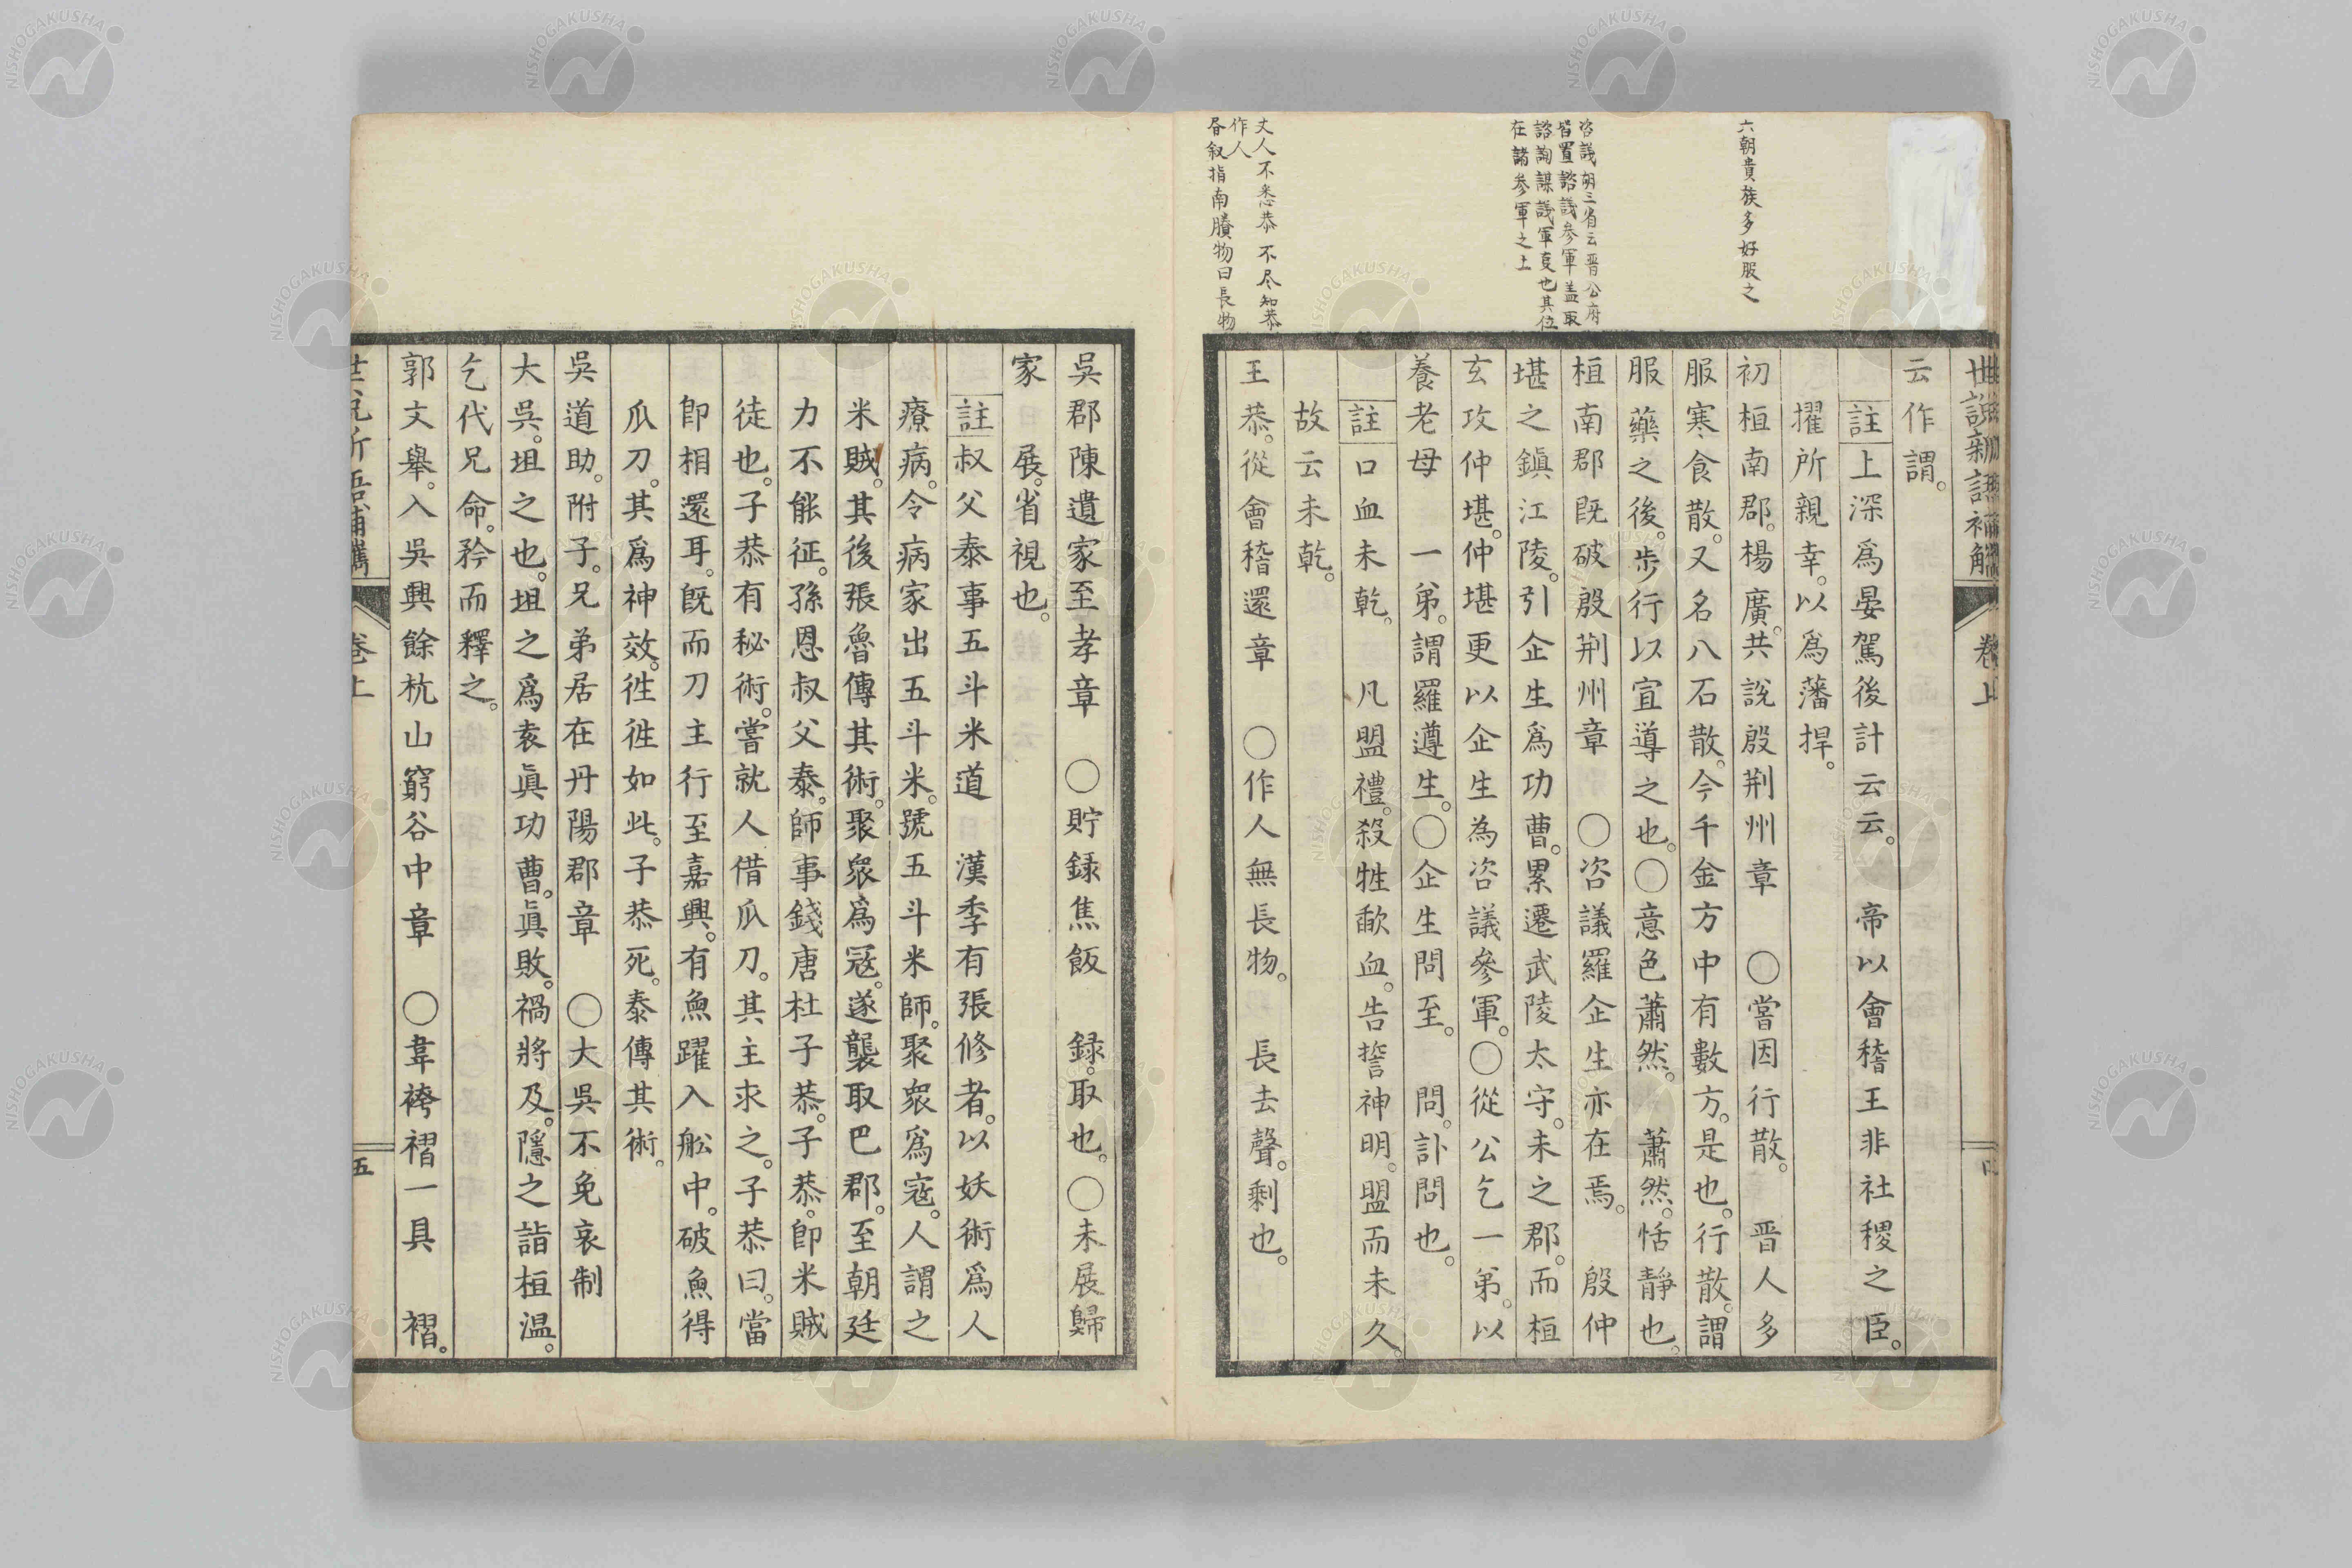 六朝貴族多好服之
咨議朝三省云晋公府
皆置諮議参軍盖取
諮詢謀議軍支也其位
在諸参軍之上
丈人不悉恭不尽知恭
作人
昏叙指南賸物曰長物
世説新語補觿 卷上
云作謂。
註上深爲晏駕後計云云。 帝以會稽王非社稷之臣。
擢所親幸。以爲藩捍。
初桓南郡。楊廣。共說殷荆州章 ○嘗因行散。 晋人多
服寒食散。又名八石散。今千金方中有數方。是也。行散。謂
服藥之後。步行以宣導之也。○意色蕭然。 蕭然。恬靜也。
桓南郡既破殷荆州章 ○咨議羅企生亦在焉。 殷仲
堪之鎭江陵。引企生爲功曹。累遷武陵太守。未之郡。而桓
玄攻仲堪。仲堪更以企生為咨議參軍。○從公乞一弟。以
養老母 一弟。謂羅遵生。○企生問至。 問。訃問也。
註口血未乾。 凡盟禮。殺牲歃血。告誓神明。盟而未久。
故云未乾。
王恭。從會稽還章 ○作人無長物。 長去聲。剩也。
吳郡陳遺家至孝章 ○貯録焦飯 録。取也。○未展歸
家 展。省視也。
註叔父泰事五斗米道 漢季有張修者。以妖術爲人
療病。令病家出五斗米。號五斗米師。聚衆爲寇。人謂之
米賊。其後張魯傳其術。聚衆爲冦。遂襲取巴郡。至朝廷
力不能征。孫恩叔父泰。師事錢唐杜子恭。子恭。卽米賊
徒也。子恭有秘術。嘗就人借瓜刀。其主求之。子恭曰。當
卽相還耳。旣而刀主行至嘉興。有魚躍入舩中。破魚得
瓜刀。其爲神效。徃徃如此。子恭死。泰傳其術。
吳道助。附子。兄弟居在丹陽郡章 ○大吳不免哀制
大吳。坦之也。坦之爲袁眞功曹。眞敗。禍將及。隱之詣桓温。
乞代兄命。矜而釋之。
郭文舉。入吳興餘杭山窮谷中章 ○韋袴褶一具 褶。
卷上
五